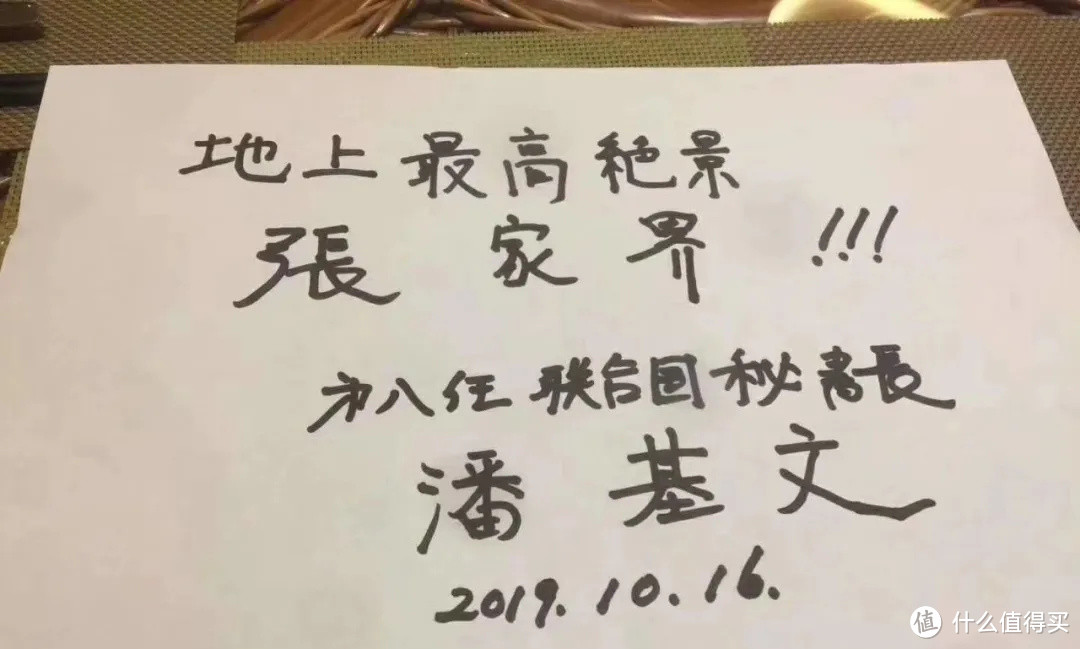 地上最高絶景
張家界!!!
第八任 联合国秘書長
潘基文
2019.10.16.
值 什么值得买